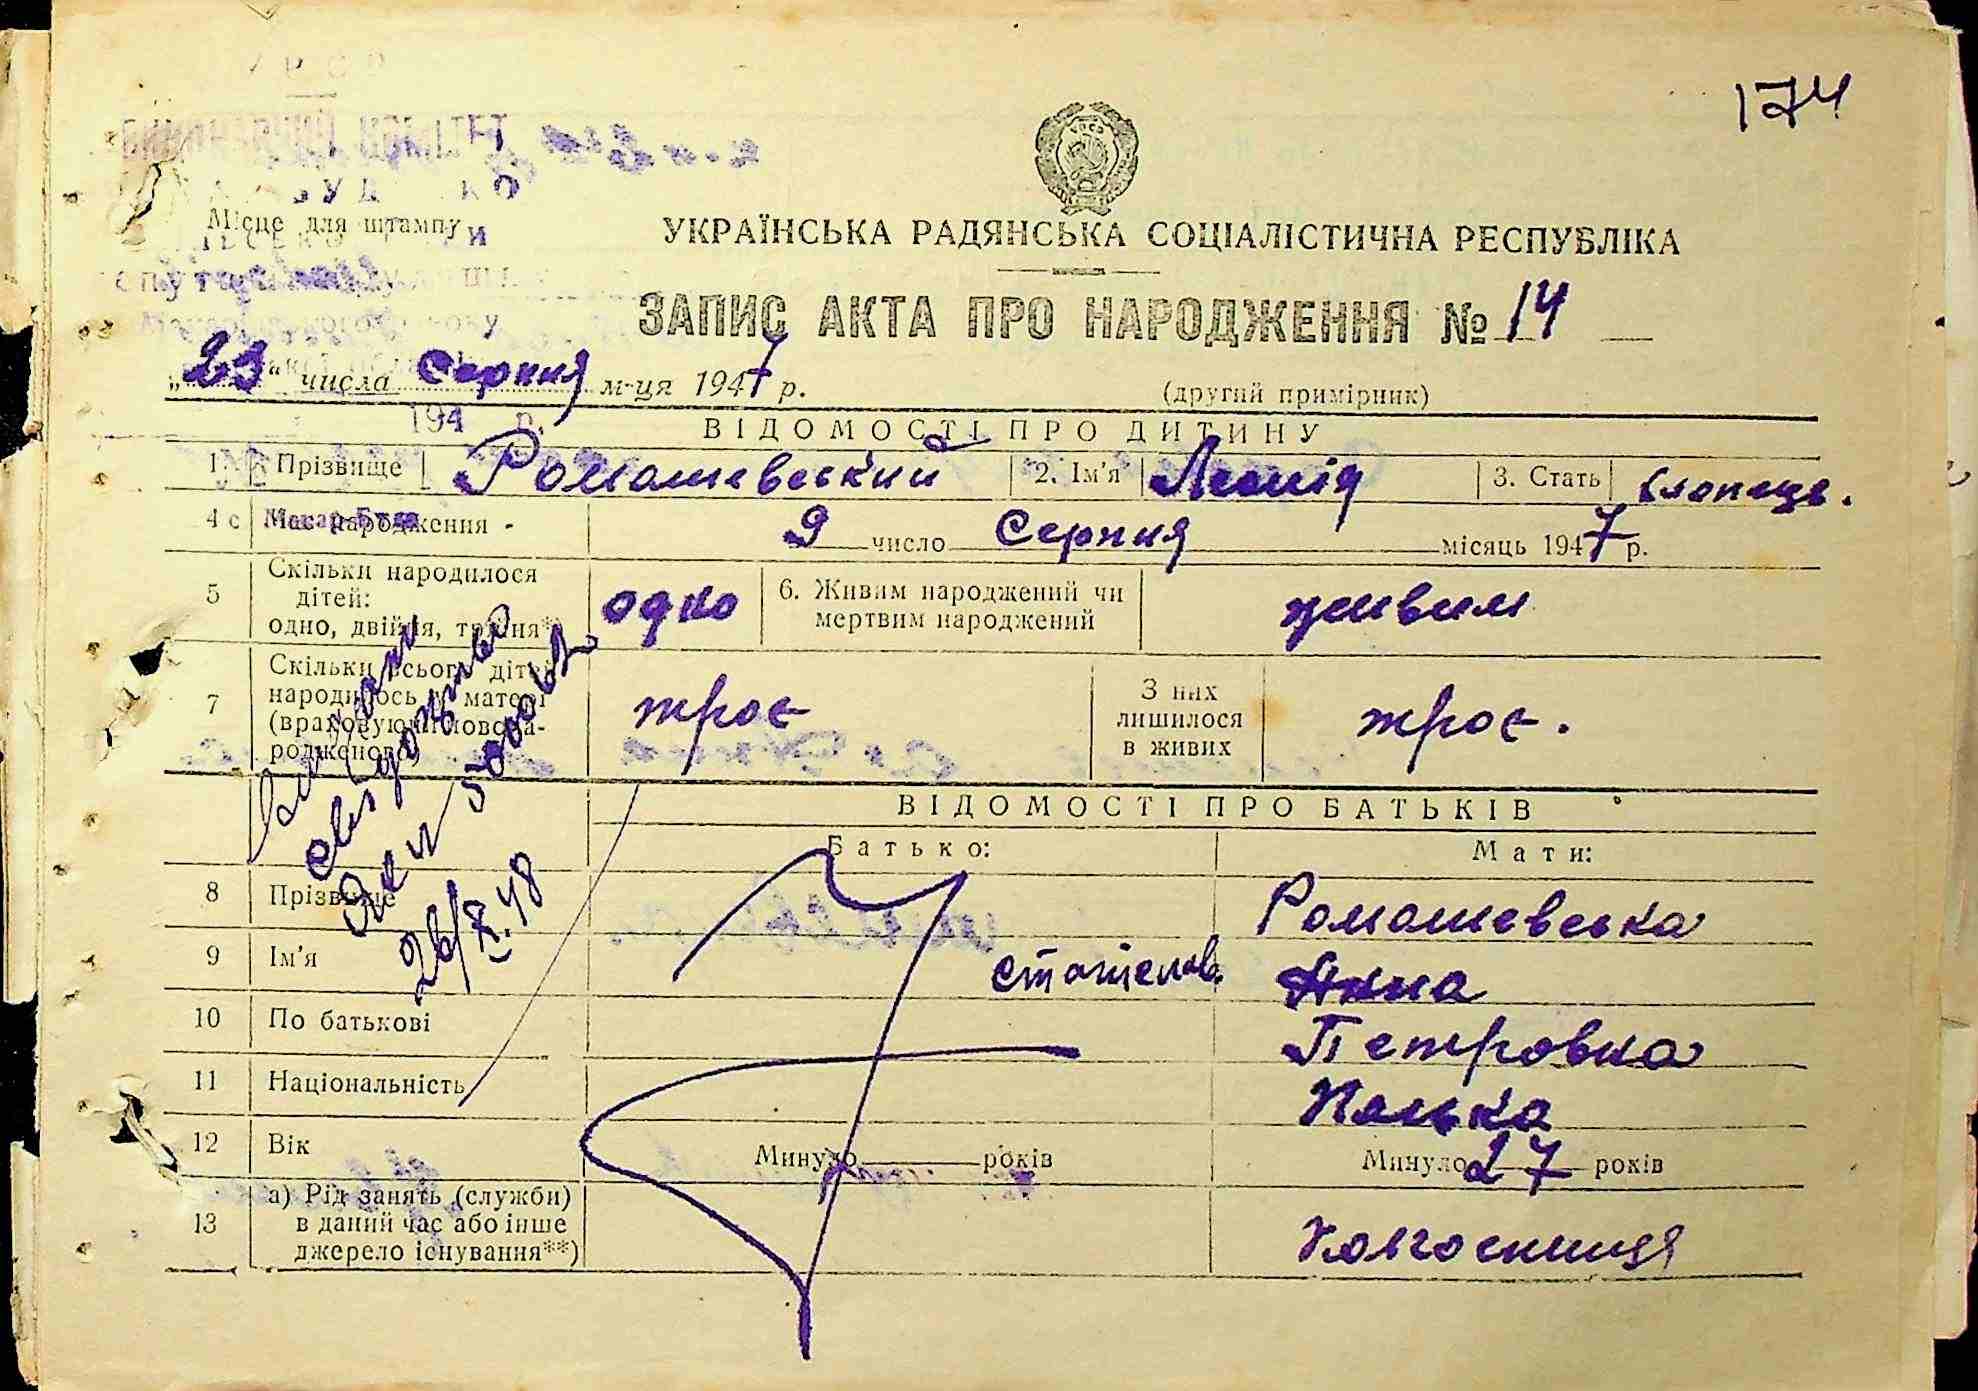 174
УКРАЇНСЬКА РАДЯНСЬКА СОЦІАЛІСТИЧНА РЕСПУБЛІКА
Місце для штампу
ЗАПИС АКТА ПРО НАРОДЖЕННЯ № 14
„23“ числа Серпня м-ця 1947 р.
(другий примірник)
194 р.
ВІДОМОСТІ ПРО ДИТИНУ
1. Прізвище Ромашевський 2. Ім'я Леонід 3. Стать хлопець.
4 Час народження 9 число Серпня місяць 1947 р.
5 Скільки народилося дітей: одно, двійня, трійня*) одно 6. Живим народжений чи мертвим народжений живим
7 Скільки всього дітей народилось у матері (враховуючи новонародженого) троє З них лишилося в живих троє.
ВІДОМОСТІ ПРО БАТЬКІВ
Батько: Мати:
8 Прізвище Ромашевська
9 Ім'я Анна
10 По батькові Петровна
11 Національність Полька
12 Вік Минуло років Минуло 27 років
13 а) Рід занять (служби) в даний час або інше джерело існування**) Колгоспниця
26/X.48